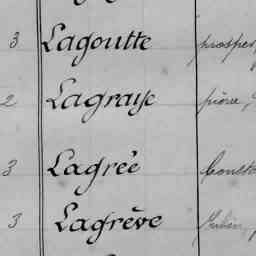 3 Lagoutte prosper,
2 Lagraije pierre,
3 Lagrée Const
3 Lagrève Julien,